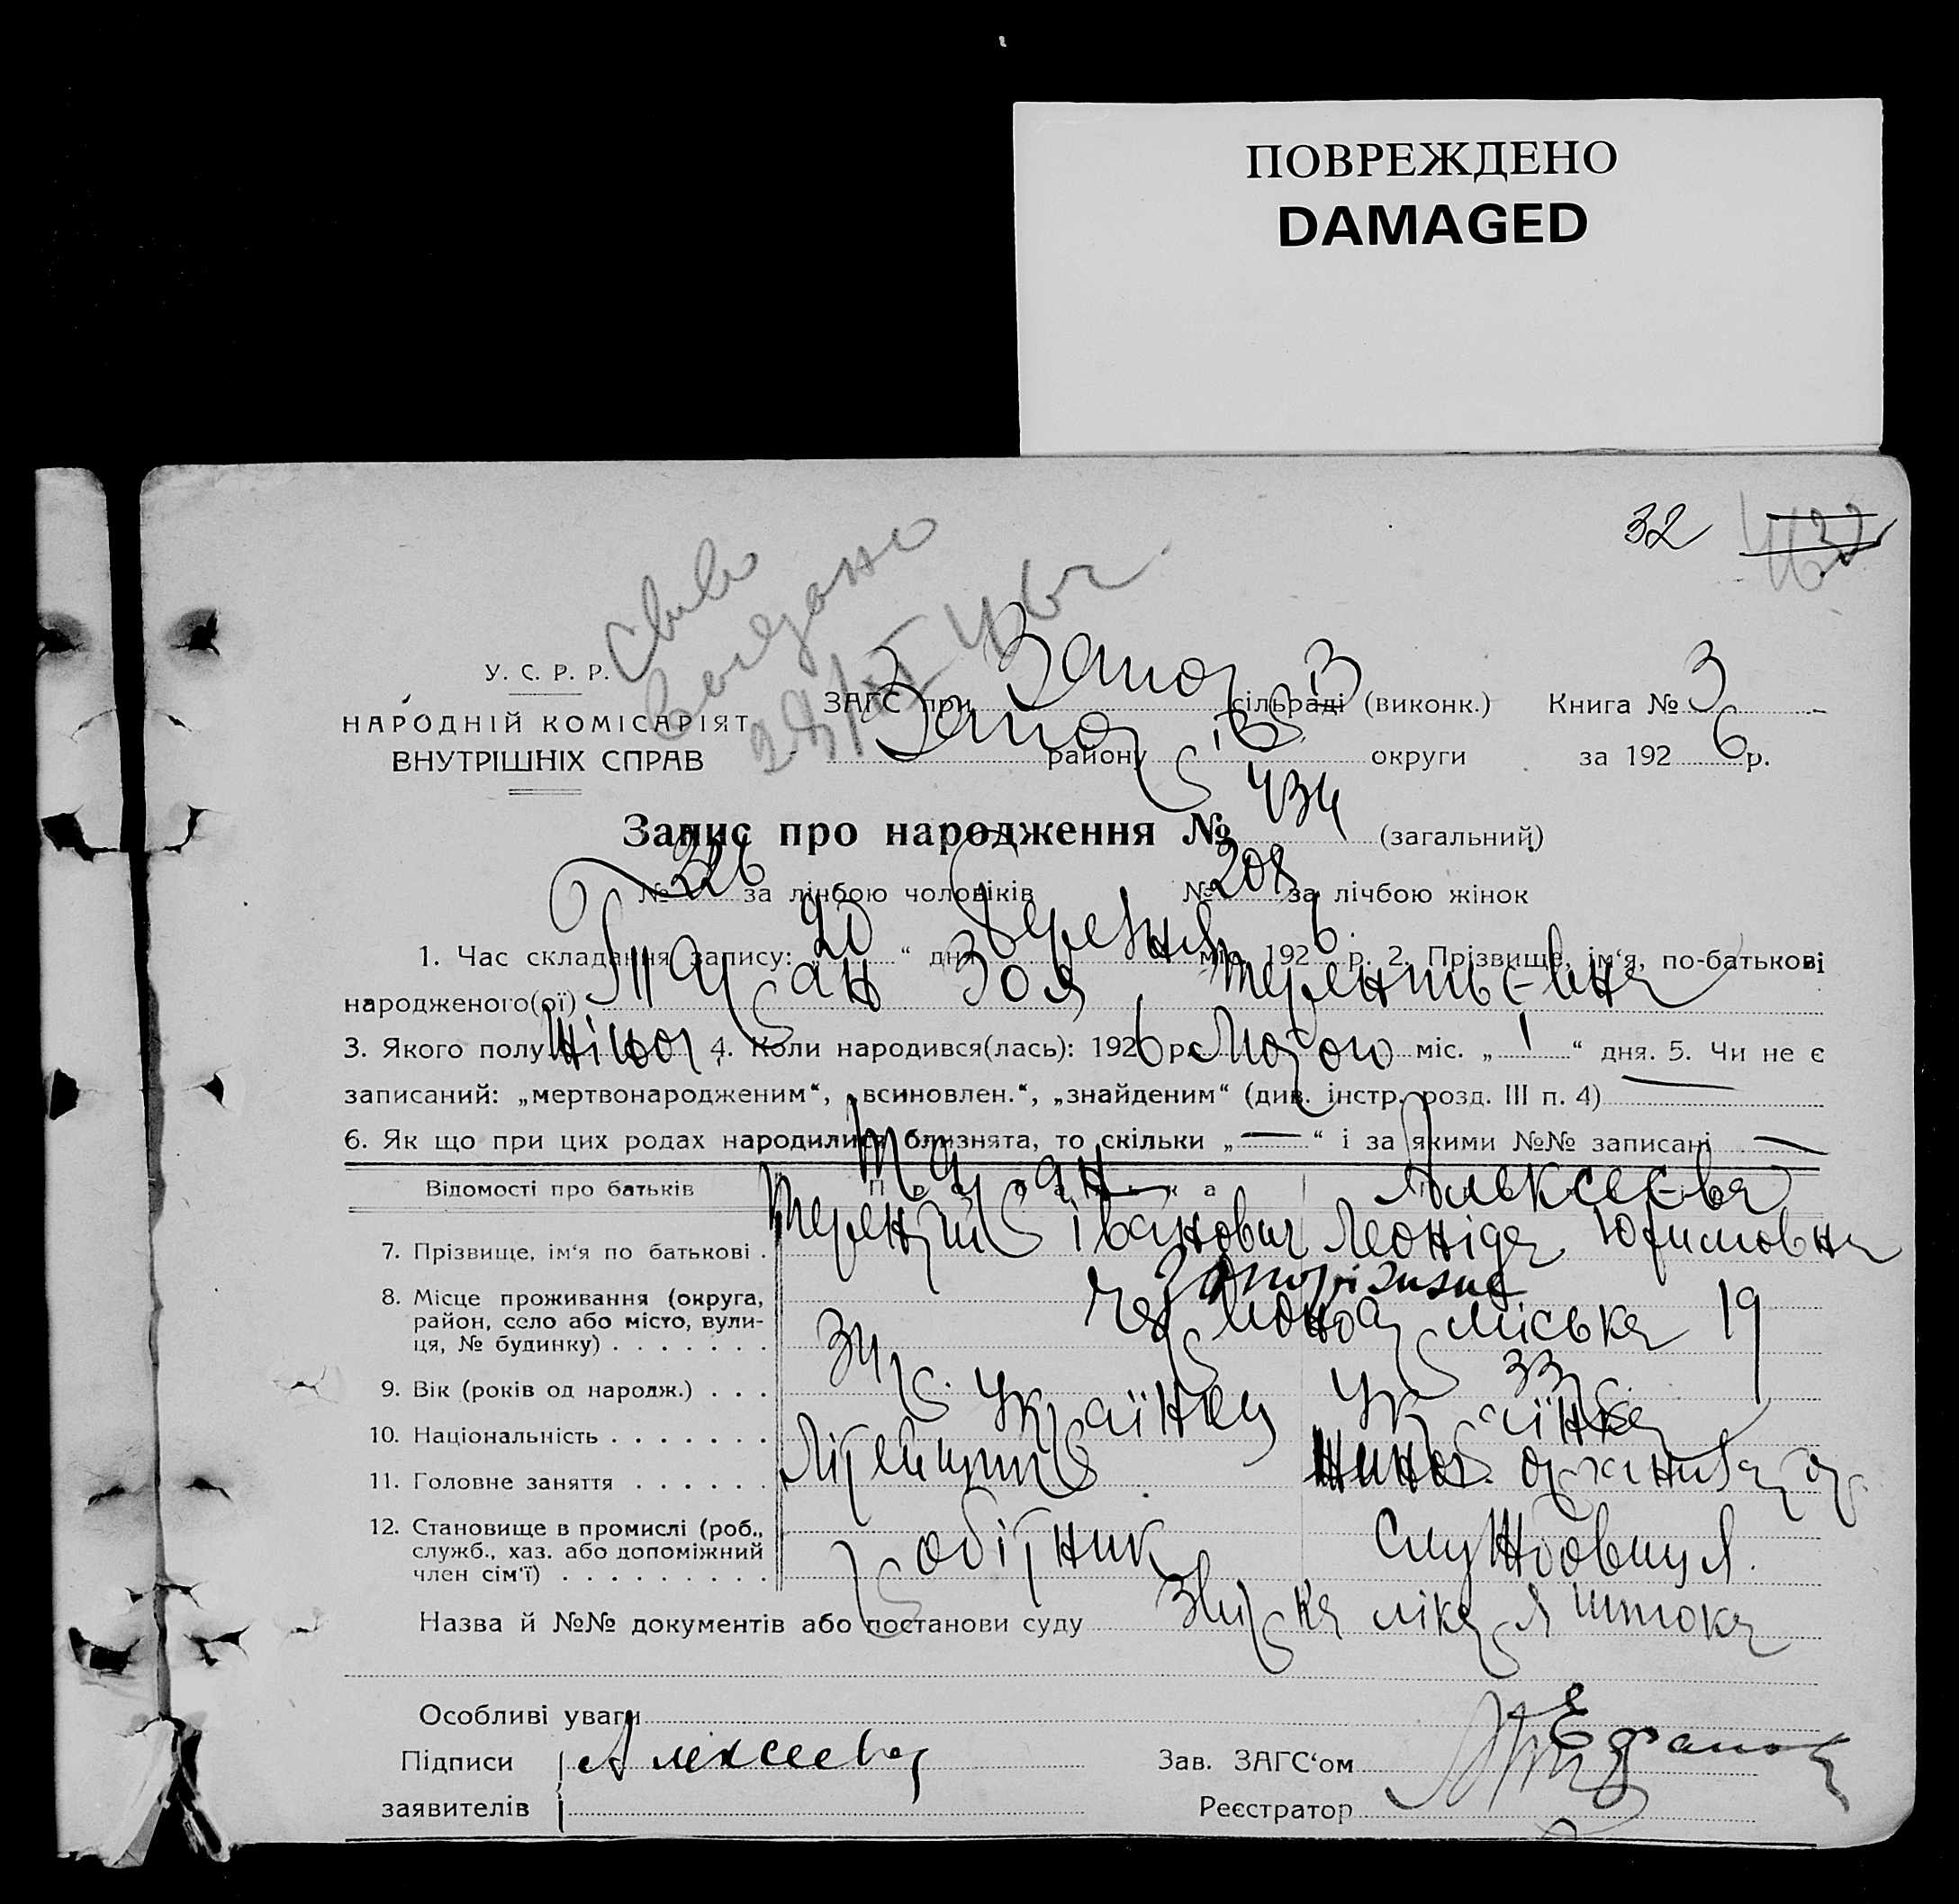 ПОВРЕЖДЕНО
DAMAGED
32
У. С. Р. Р.
НАРОДНІЙ КОМІСАРІЯТ
ВНУТРІШНІХ СПРАВ
ЗАГС при Запор сільраді (виконк.) Книга № 3
Запор району округи за 1926 р.
Запис про народження № 434 (загальний)
№ 226 за лічбою чоловіків № 208 за лічбою жінок
1. Час складання запису: „20“ дня Березня міс. 1926 р. 2. Прізвище, ім‘я, по-батькові
народженого(ої) Таран Зоя Терентьєвна
3. Якого полу жіноч 4. Коли народився(лась): 1926 р. Лютого міс. „1“ дня. 5. Чи не є
записаний: „мертвонародженим“, „всиновлен.“, „знайденим“ (див. інстр. розд. III п. 4) —
6. Як що при цих родах народилися близнята, то скільки „—“ і за якими №№ записані —
Відомості про батьків Про батька
7. Прізвище, ім‘я по батькові . Таран Терентій Іванович Алексеєва Леоніда Юхимовна
8. Місце проживання (округа, район, село або місто, вулиця, № будинку) . . . . . . . Запоріжжє міська 19
9. Вік (років од народж.) . . . 34 р. 33 р.
10. Національність . . . . . . . Українец Українка
11. Головне заняття . . . . . . Літейщик
12. Становище в промислі (роб., служб., хаз. або допоміжний член сім‘ї) . . . . . . . . . робітник Службовиця.
Назва й №№ документів або постанови суду лікаря Штока
Особливі уваги
Підписи Алексеева Зав. ЗАГС‘ом
заявителів Реєстратор